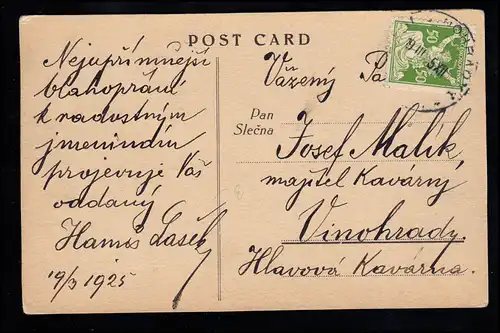 POST CARD
Nejupřímnější
blahopřání
k radostným
jmeninám
projevuje Váš
oddaný
Lašek
19/3 1925
Vážený Pa
Pan
Slečna
Josef Malík,
majitel Kavárny
Vinohrady.
Hlavová Kavárna.
50
50